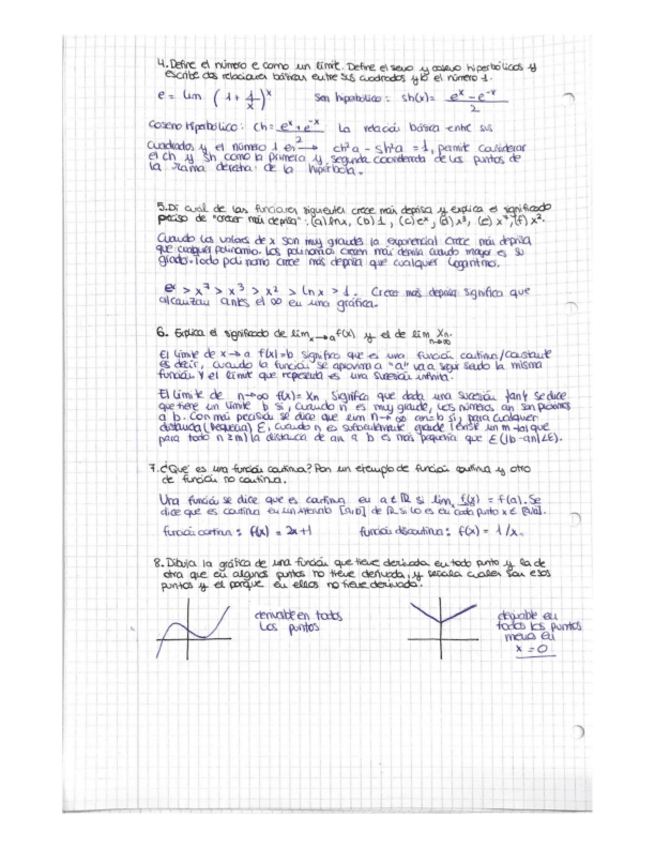 4. Define el número e como un límit. Define el seno y coseno hiperbólicos y
escribe dos relaciones básicas entre sus cuadrados y/o el número 1.
e = lim (1 + 1/x)^x    Sen hiperbólico : sh(x) = (e^x - e^-x)/2
Coseno Hiperbólico : Ch = (e^x + e^-x)/2    La relación básica entre sus
cuadrados y el número 1 es → ch²a - sh²a = 1, permite considerar
el ch y sh como la primera y segunda coordenada de los puntos de
la rama derecha de la hipérbola.
5. Di cual de las funciones siguientes crece más deprisa y explica el significado
preciso de "crecer más deprisa". (a) lnx, (b) 1, (c) e^x, (d) x³, (e) x⁷, (f) x².
Cuando los valores de x son muy grandes la exponencial crece más deprisa
que cualquier polinomio. Los polinomios crecen más deprisa cuando mayor es su
grado. Todo polinomio crece más deprisa que cualquier logaritmo.
e^x > x⁷ > x³ > x² > lnx > 1. Crecer más deprisa significa que
alcanzan antes el ∞ en una gráfica.
6. Explica el significado de lim x→a f(x) y el de lim n→∞ Xn.
El límite de x→a f(x)=b significa que es una función continua/constante
es decir, cuando la función se aproxima a "a" va a seguir siendo la misma
función y el límite que representa es una sucesión infinita.
El límite de n→∞ f(x) = Xn, significa que dada una sucesión {an} se dice
que tiene un límite b si, cuando n es muy grande, los números an son próximos
a b. Con más precisión se dice que lim n→∞ an=b si, para cualquier
distancia (pequeña) ε, cuando n es suficientemente grande (existe un m tal que
para todo n≥m) la distancia de an a b es más pequeña que ε (|b-an|<ε).
7. ¿Qué es una función continua? Pon un ejemplo de función continua y otro
de función no continua.
Una función se dice que es continua en a ∈ ℝ si lim x f(x) = f(a). Se
dice que es continua en un intervalo [a,b] de ℝ si lo es en cada punto x ∈
función continua : f(x) = 2x+1    función discontinua : f(x) = 1/x.
8. Dibuja la gráfica de una función que tiene derivada en todo punto y la de
otra que en algunos puntos no tiene derivada, y señala cuales son esos
puntos y el porqué en ellos no tiene derivada.
derivable en todos
los puntos
derivable en
todos los puntos
menos en
x = 0